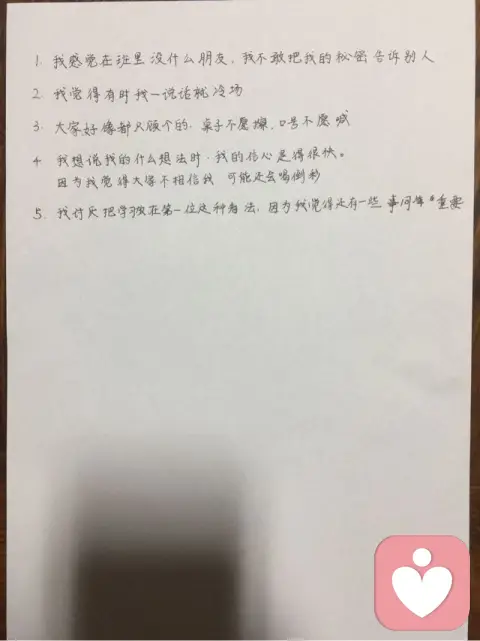 1. 我感觉在班里没什么朋友，我不敢把我的秘密告诉别人
2. 我觉得有时我一说话就冷场
3. 大家好像都只顾个的.桌子不愿擦，口号不愿喊
4 我想说我的什么想法时.我的信心走得很快。
因为我觉得大家不相信我 可能还会喝倒彩
5. 我讨厌把学习放在第一位这种看法，因为我觉得还有一些 事同等重要